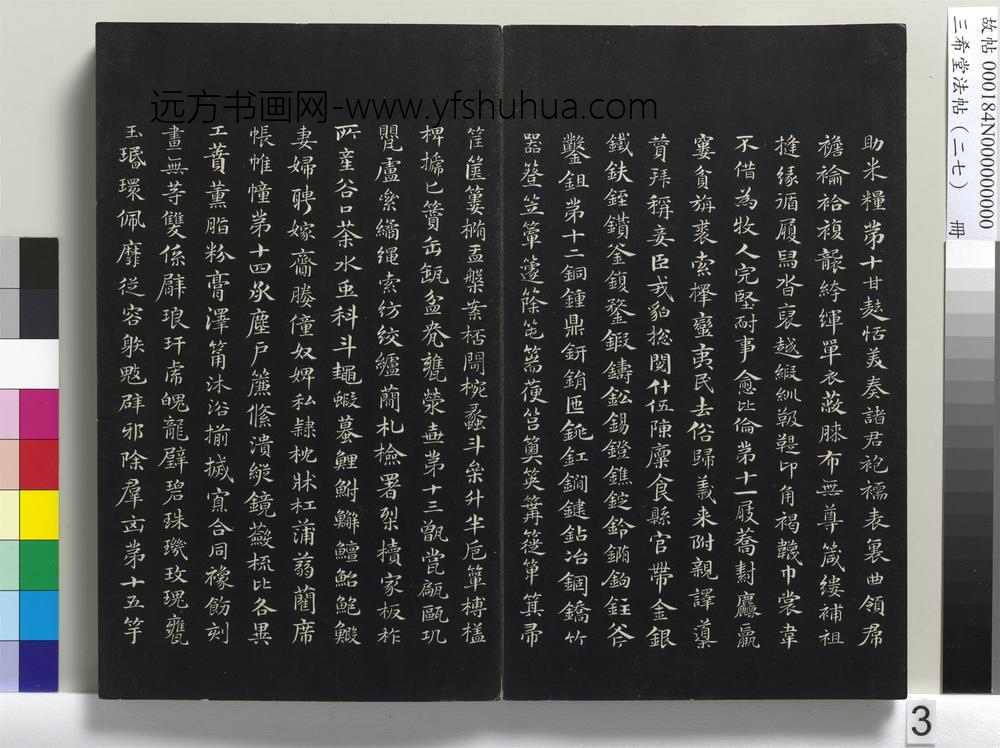 故帖 000184N000000000
三希堂法帖（二七） 冊
远方书画网-www.yfshuhua.com
助米糧第十甘麩恬美奏諸君袍襦表裏曲領帬
襜褕袷複襲綺緷單衣蔽膝布無尊箴縷補袒
挻緣循履舄沓裒越緞紃靸鞮卬角褐韈巾裳韋
不借為牧人完堅耐事愈比倫第十一屐蕎麤羸
窶貧旃裘索擇蠻夷民去俗歸義來附親譯導
贊拜稱妾臣戎貊總閱什伍陳廩食縣官帶金銀
鐵鈇銍鑽釜鍑鍪鍛鑄鈆錫鐙鐎錠鈴鐗鉤釪斧
鑿鉏第十二銅鍾鼎鈃鋗匜銚釭鐗鍵鉆冶錮鐈竹
器簦笠簟籧篨篅筥筴篝筵箄箕帚
筐篋簍橢盂槃案桮閜椀蠡斗升半卮簞榑榼
椑㯫匕缶缻盆甕罃壺第十三甑甂甌瓨
甖盧纍繘繩索紡絞纑蕳札檢署槧櫝家板柞
所產谷口茶水虫科斗蠅蝦蟇鯉鮒鱓鱣鮐鮑鰕
妻婦聘嫁齎媵僮奴婢私隸枕牀杠蒲蒻藺席
帳帷幢第十四承塵戶簾絛潰縱鏡奩梳比各異
工蕡薰脂粉膏澤筩沐浴揃搣寡合同襐飭刻
畫無等雙係臂琅玕虎魄龍璧碧珠璣玫瑰甕
玉環佩靡從容射鬾辟邪除羣凶第十五竽
3